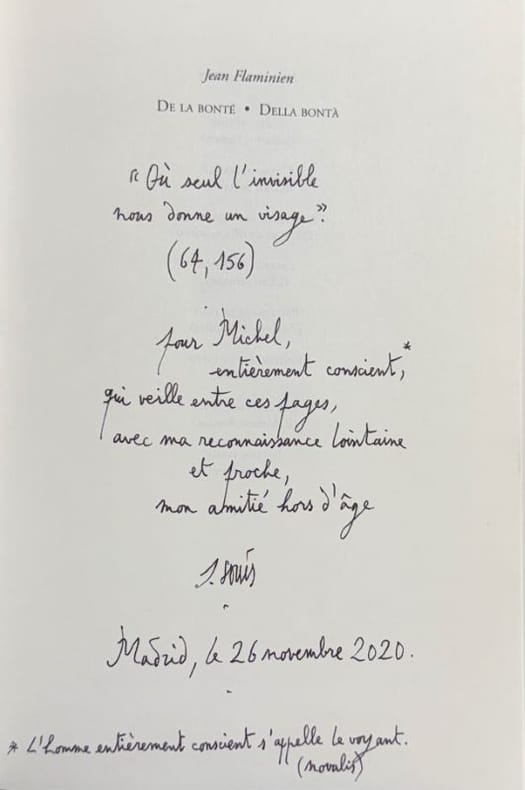 Jean Flaminien
DE LA BONTÉ • DELLA BONTÀ
« Où seul l'invisible
nous donne un visage ».
(64, 156)
pour Michel,
entièrement conscient,*
qui veille entre ces pages,
avec ma reconnaissance lointaine
et proche,
mon amitié hors d'âge
J. Louis
Madrid, le 26 novembre 2020.
* L'homme entièrement conscient s'appelle le voyant.
(Novalis)